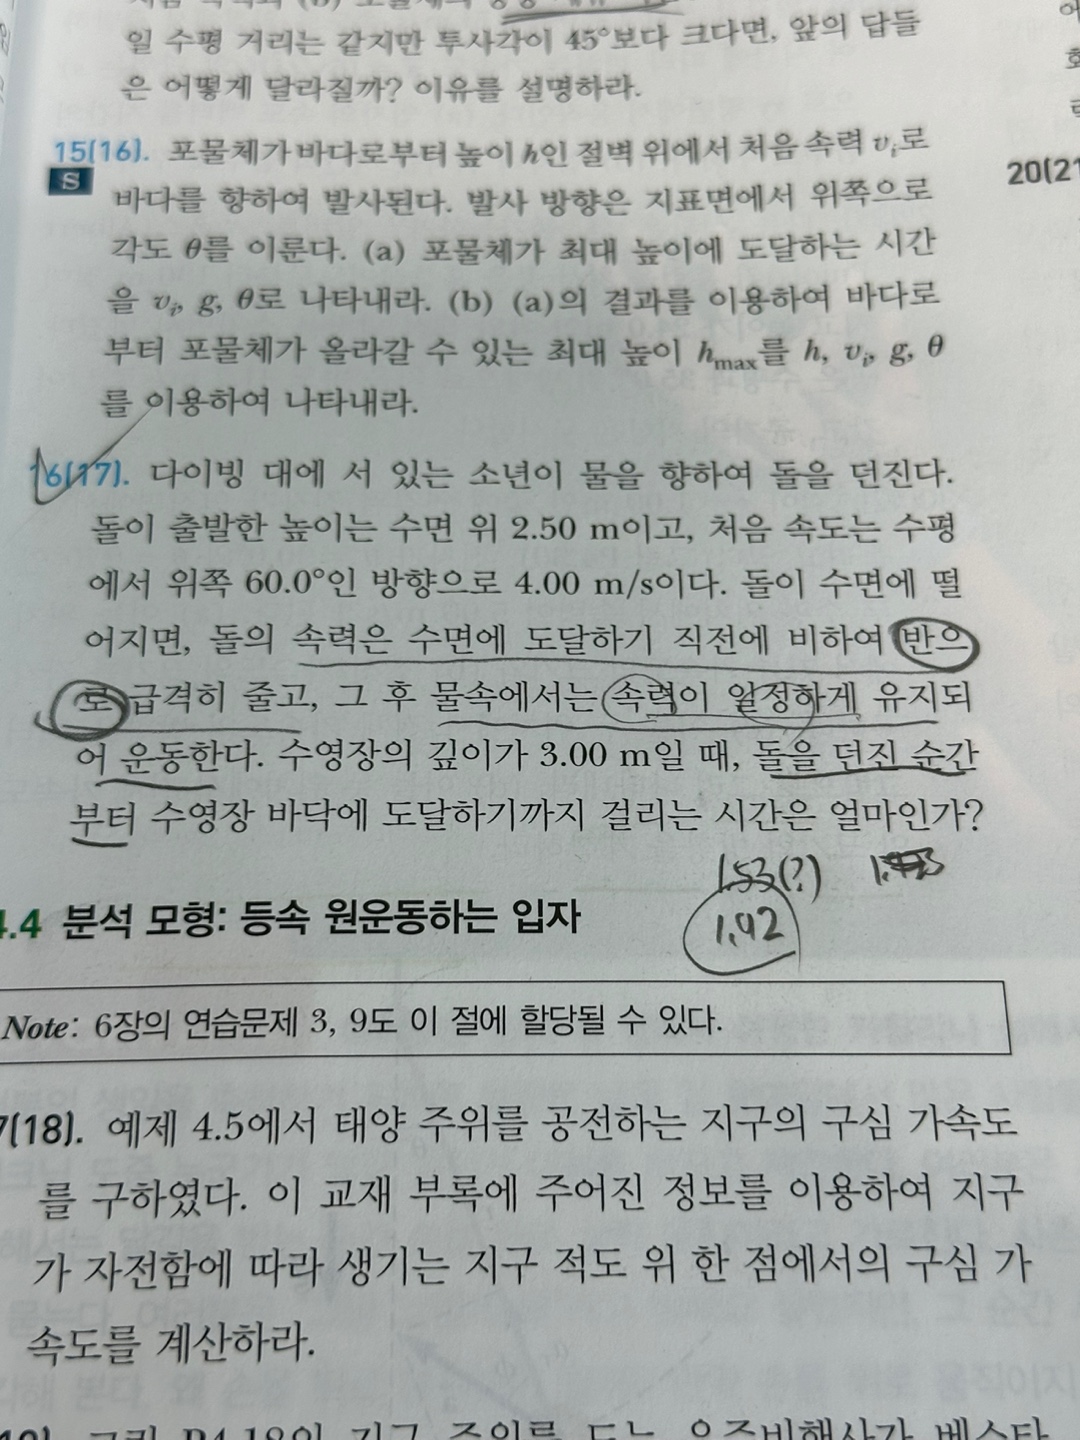 일 수평 거리는 같지만 투사각이 45°보다 크다면, 앞의 답들
은 어떻게 달라질까? 이유를 설명하라.
15(16). 포물체가 바다로부터 높이 h인 절벽 위에서 처음 속력 vᵢ로
S
바다를 향하여 발사된다. 발사 방향은 지표면에서 위쪽으로
20(21
각도 θ를 이룬다. (a) 포물체가 최대 높이에 도달하는 시간
을 vᵢ, g, θ로 나타내라. (b) (a)의 결과를 이용하여 바다로
부터 포물체가 올라갈 수 있는 최대 높이 hmax를 h, vᵢ, g, θ
를 이용하여 나타내라.
16(17). 다이빙 대에 서 있는 소년이 물을 향하여 돌을 던진다.
돌이 출발한 높이는 수면 위 2.50 m이고, 처음 속도는 수평
에서 위쪽 60.0°인 방향으로 4.00 m/s이다. 돌이 수면에 떨
어지면, 돌의 속력은 수면에 도달하기 직전에 비하여 반으
로 급격히 줄고, 그 후 물속에서는 속력이 일정하게 유지되
어 운동한다. 수영장의 깊이가 3.00 m일 때, 돌을 던진 순간
부터 수영장 바닥에 도달하기까지 걸리는 시간은 얼마인가?
1.53(?)
1.92
4.4 분석 모형: 등속 원운동하는 입자
Note: 6장의 연습문제 3, 9도 이 절에 할당될 수 있다.
7(18). 예제 4.5에서 태양 주위를 공전하는 지구의 구심 가속도
를 구하였다. 이 교재 부록에 주어진 정보를 이용하여 지구
가 자전함에 따라 생기는 지구 적도 위 한 점에서의 구심 가
속도를 계산하라.